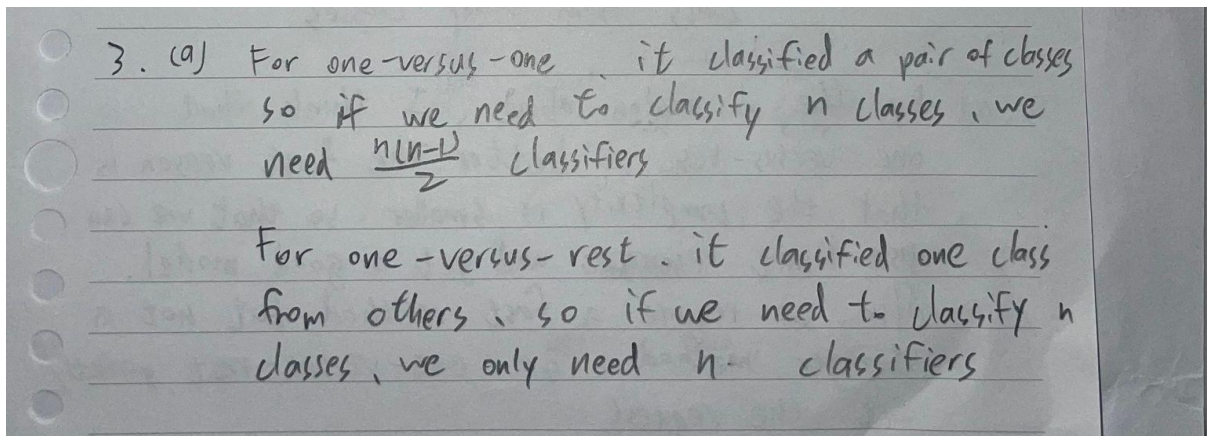 3. (a) For one-versus-one, it classified a pair of classes
so if we need to classify n classes, we
need n(n-1)/2 classifiers
For one-versus-rest. it classified one class
from others, so if we need to classify n
classes, we only need n. classifiers